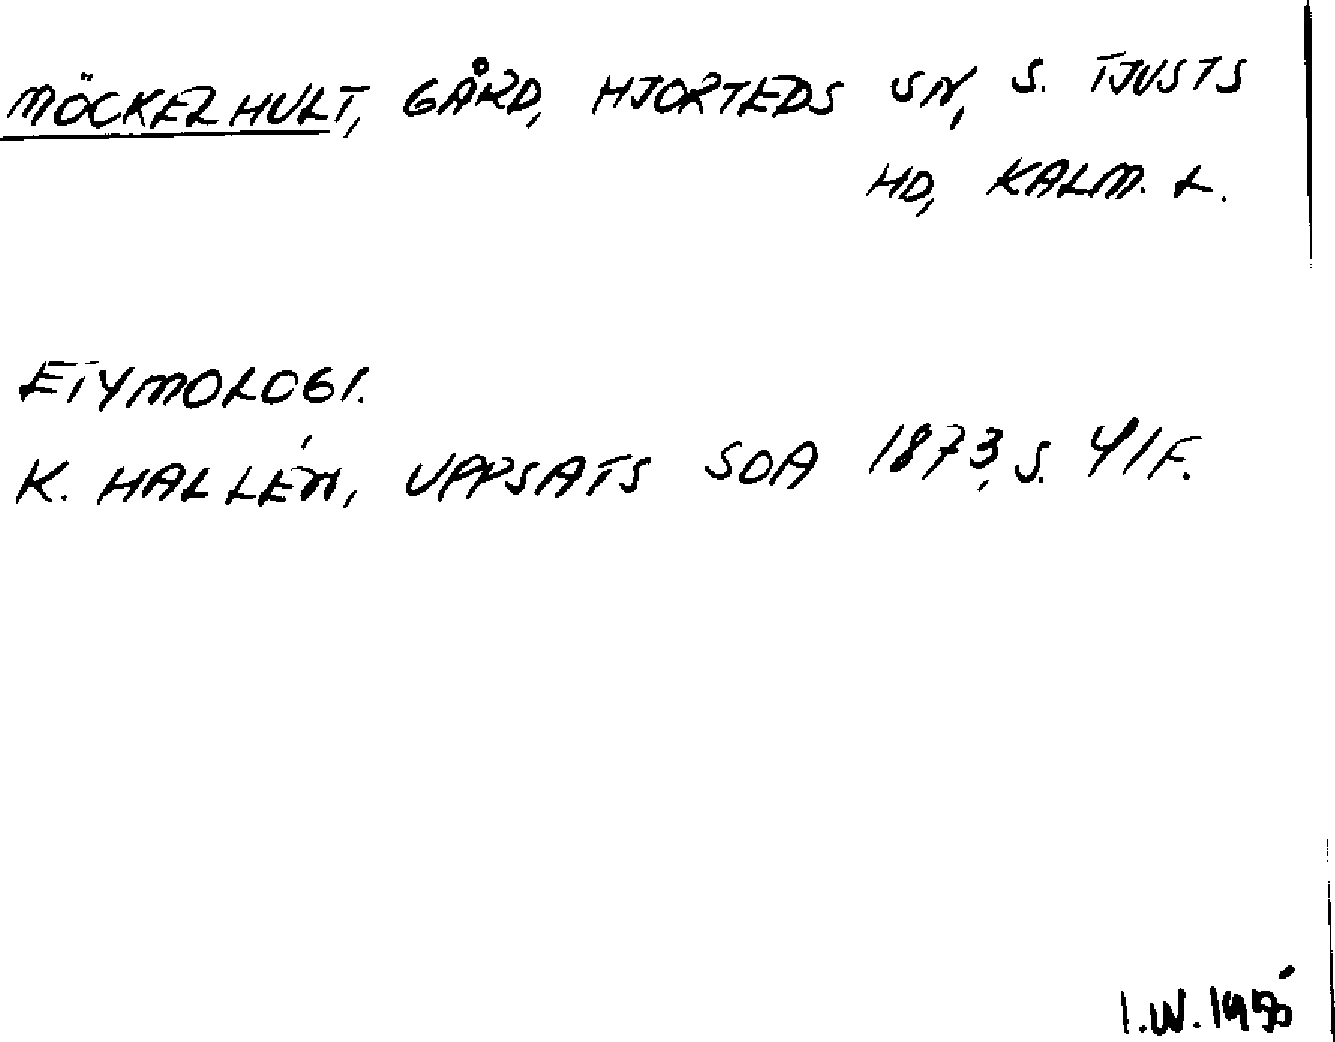 MÖCKELHULT, GÅRD, HJORTEDS SN, S. TJUSTS
HD, KALM. L.
ETYMOLOGI.
K. HALLÉN, UPPSATS SOA 1873, S. 41 F.
I.W. 1955